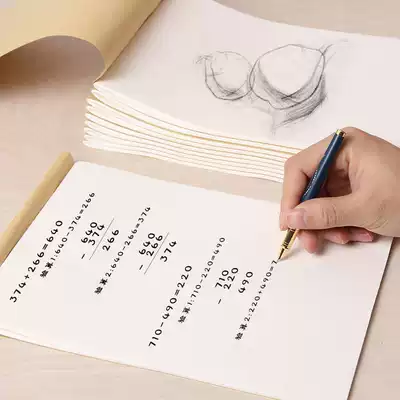 374+266=640
验算1:640-374=266
640
- 374
266
验算2:640-266=374
640
- 266
374
710-490=220
验算1:710-220=490
710
- 220
490
验算2:220+490=7